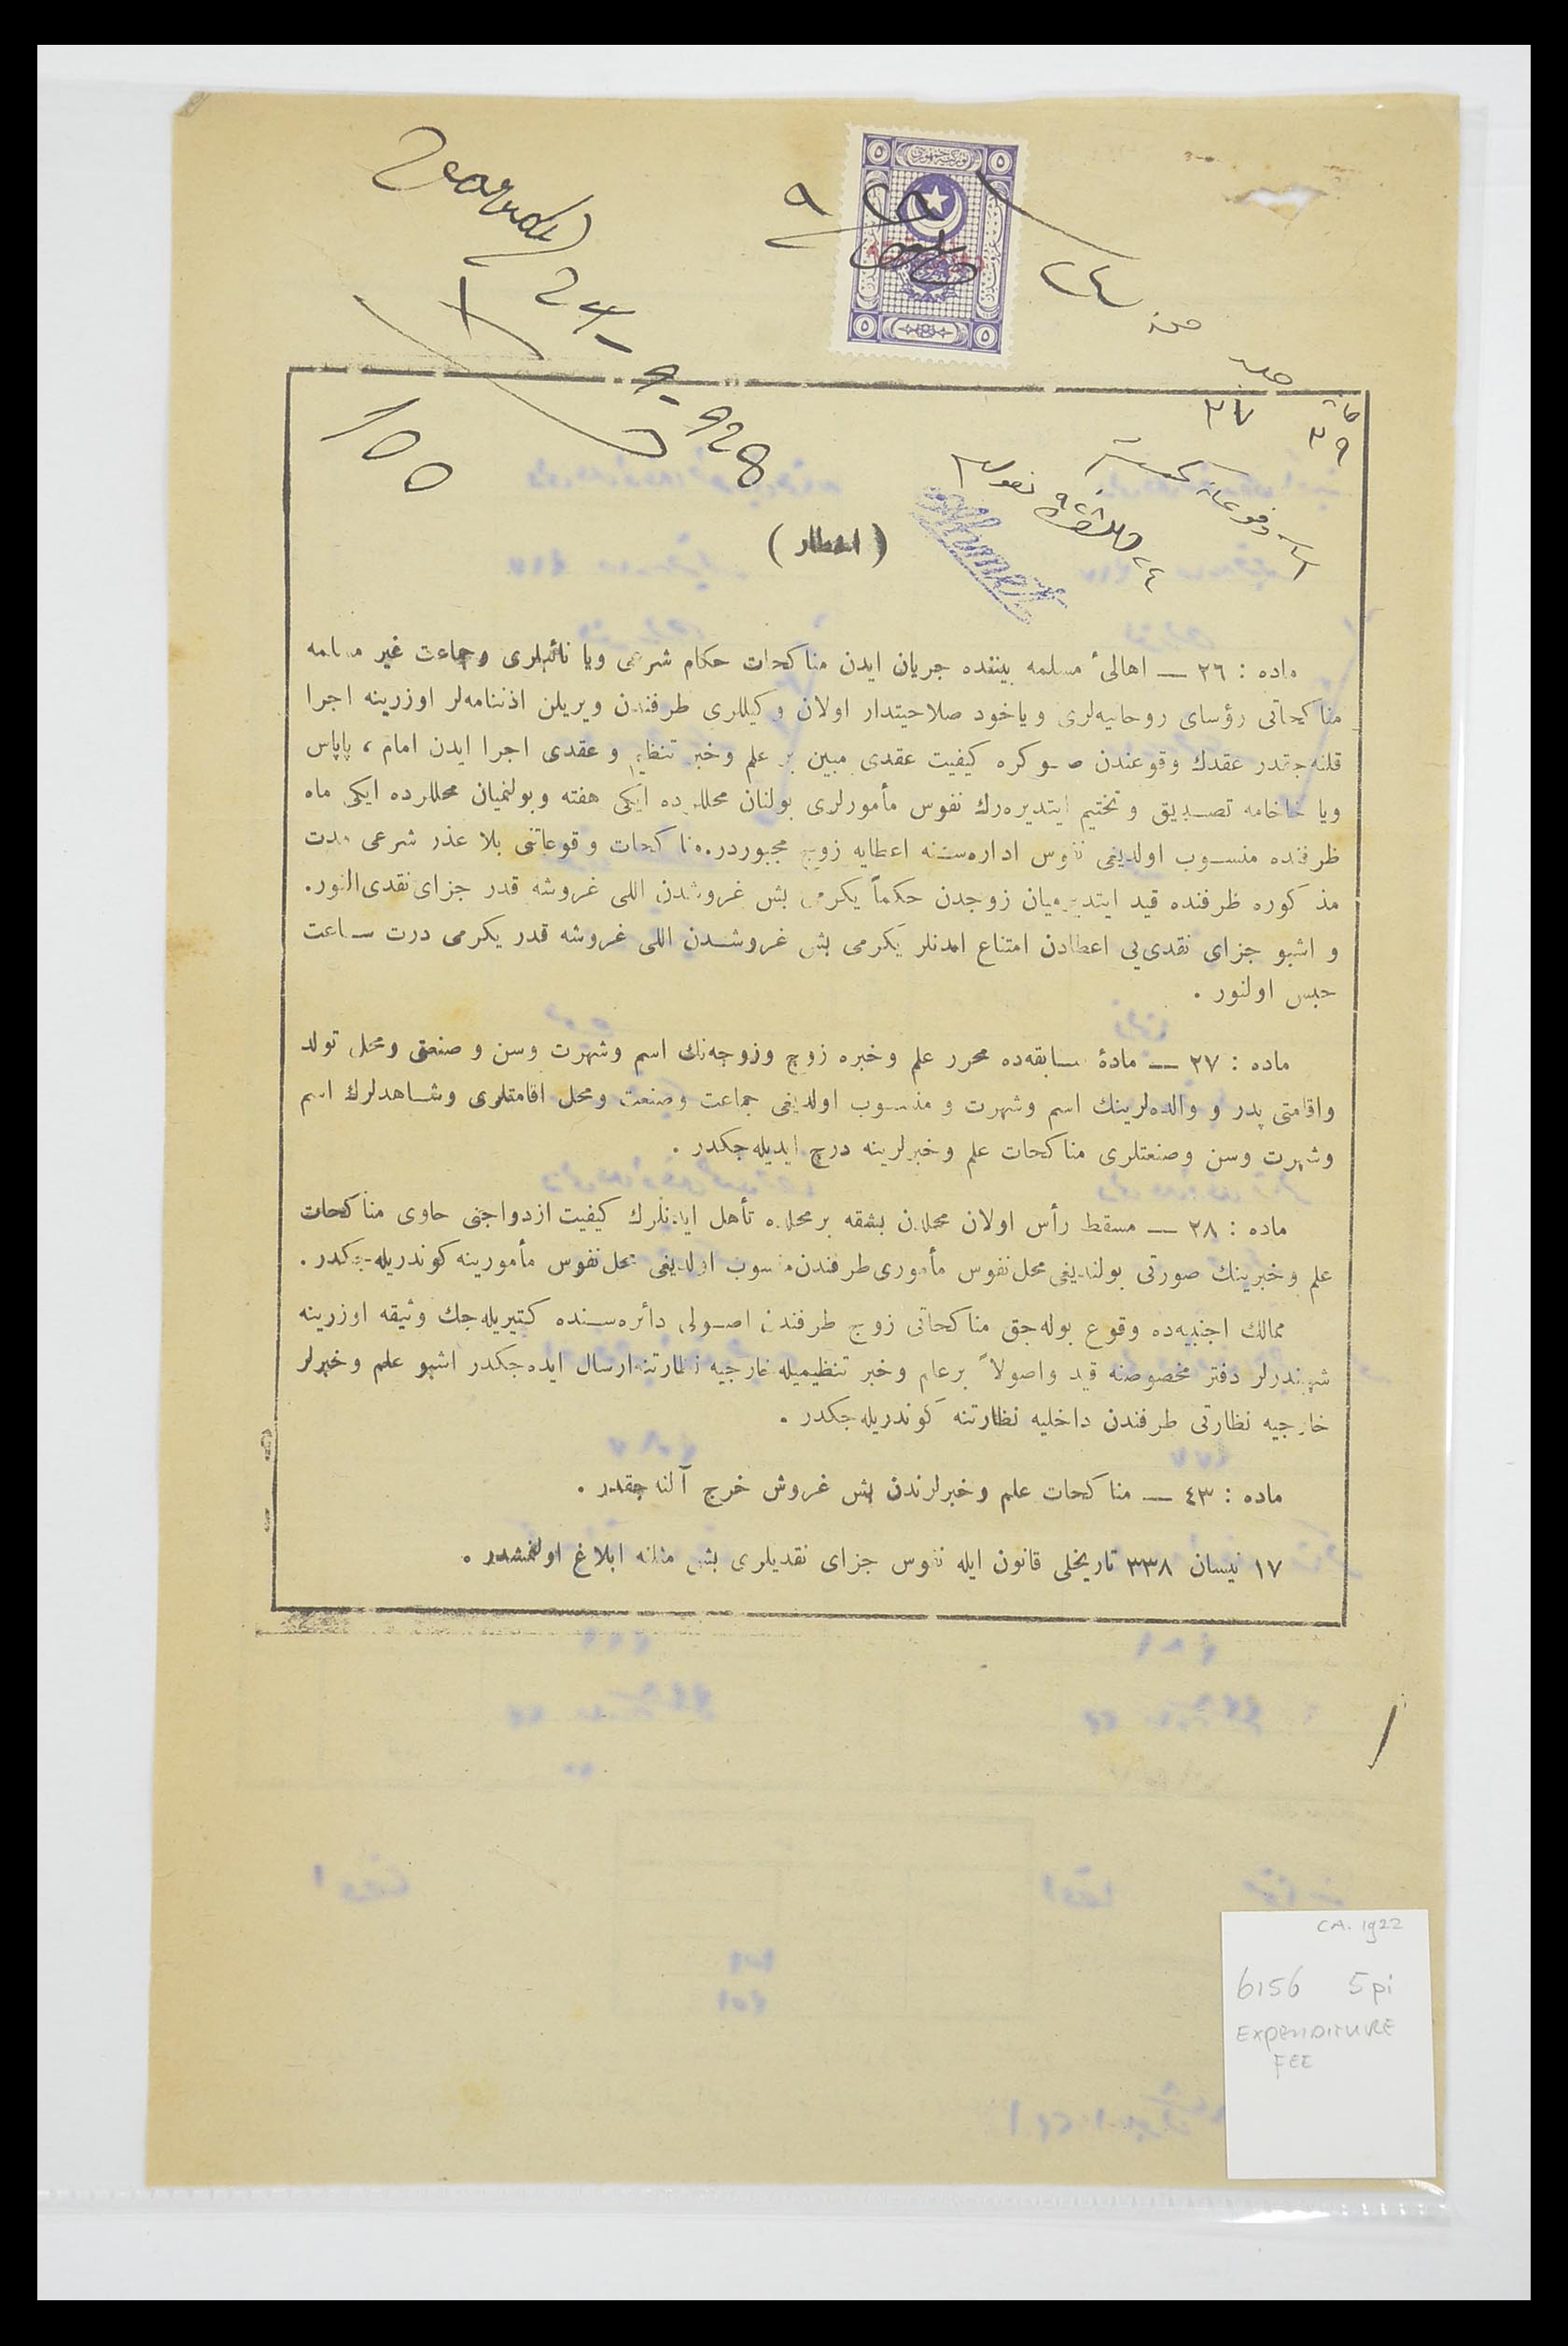 24-9-928
155
٩
٢٤
٣٧
٣٩
Ahmet
( اخطار )
ماده : ٢٦ — اهالیٔ مسلمه بیننده جریان ایدن مناكحات حكام شرعی ویا نائبلری وجماعت غیر مسلمه
مناكحاتی رؤسای روحانیه‌لری ویاخود صلاحیتدار اولان وكیللری طرفندن ویریلن اذننامه‌لر اوزرینه اجرا
قلنه‌جقدر عقدك وقوعندن صوكره كیفیت عقدی مبین بر علم وخبر تنظیم و عقدی اجرا ایدن امام ، پاپاس
ویا خاخامه تصدیق وتختیم ایتدیره‌رك نفوس مأمورلری بولنان محللرده ایكی هفته وبولنمیان محللرده ایكی ماه
ظرفنده منسوب اولدیغی نفوس اداره‌سنه اعطایه زوج مجبوردر. مناكحات وقوعاتنی بلا عذر شرعی مدت
مذكوره ظرفنده قید ایتدیرمیان زوجدن حكماً یكرمی بش غروشدن اللی غروشه قدر جزای نقدی النور.
و اشبو جزای نقدی‌یی اعطادن امتناع ایدنلر یكرمی بش غروشدن اللی غروشه قدر یكرمی درت ساعت
حبس اولنور .
ماده : ٢٧ — مادهٔ سابقه‌ده محرر علم وخبره زوج وزوجه‌نك اسم وشهرت وسن و صنعتی ومحل تولد
واقامتی پدر و والده‌لرینك اسم وشهرت و منسوب اولدیغی جماعت وصنعت ومحل اقامتلری وشاهدلرك اسم
وشهرت وسن وصنعتلری مناكحات علم وخبرلرینه درج ایدیله‌جكدر .
ماده : ٢٨ — مسقط رأس اولان محلدن بشقه بر محلده تأهل ایدنلرك كیفیت ازدواجنی حاوی مناكحات
علم وخبرینك صورتی بولندیغی محل نفوس مأموری طرفندن منسوب اولدیغی محل نفوس مأمورینه كوندریله‌جكدر .
ممالك اجنبیه‌ده وقوع بوله‌جق مناكحاتی زوج طرفندن اصولی دائره‌سنده كتیریله‌جك وثیقه اوزرینه
شهبندرلر دفتر مخصوصنه قید واصولاً برعلم وخبر تنظیمیله خارجیه نظارتنه ارسال ایده‌جكدر اشبو علم وخبرلر
خارجیه نظارتی طرفندن داخلیه نظارتنه كوندریله‌جكدر .
ماده : ٤٣ — مناكحات علم وخبرلرندن بش غروش خرج آلنه‌جقدر .
١٧ نیسان ٣٣٨ تاریخلی قانون ایله نفوس جزای نقدیلری بش مثلنه ابلاغ اولنمشدر .
CA. 1922
6156 5pi
EXPENDITURE
FEE